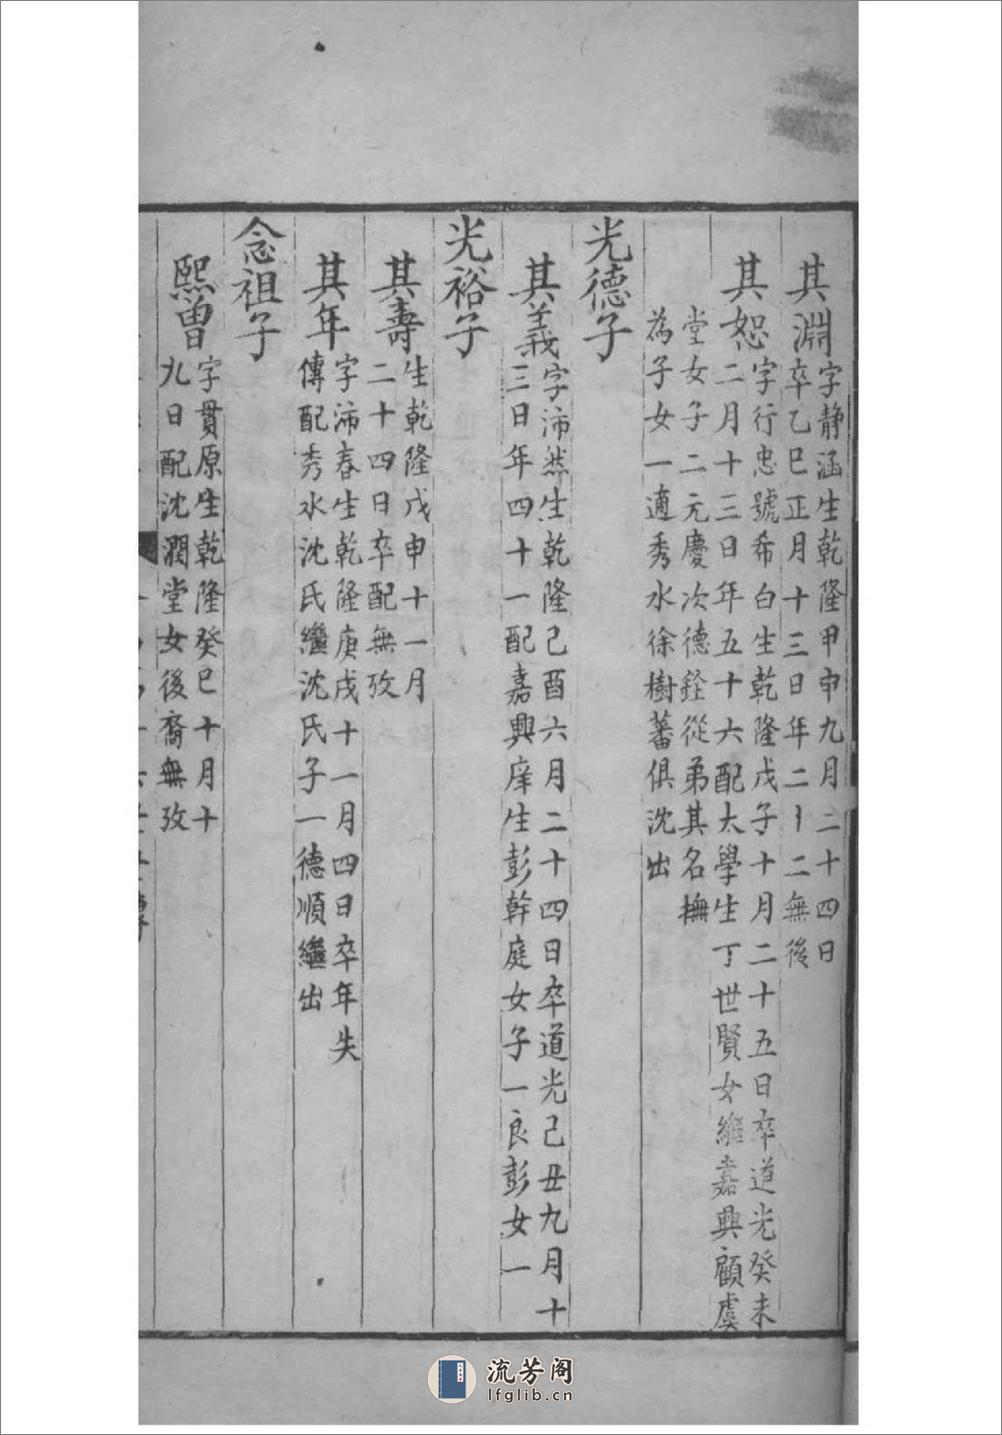 其淵字静涵生乾隆甲申九月二十四日
卒乙巳正月十三日年二十二無後
其恕字行忠號希白生乾隆戊子十月二十五日卒道光癸未
二月十三日年五十六配太學生丁世賢女繼嘉興顧虞
堂女子二元慶次德銓從弟其名撫
為子女一適秀水徐樹蕃俱沈出
光德子
其義字沛然生乾隆己酉六月二十四日卒道光己丑九月十
三日年四十一配嘉興庠生彭幹庭女子一良彭女一
光裕子
其壽生乾隆戊申十一月
二十四日卒配無攷
其年字沛春生乾隆庚戌十一月四日卒年失
傳配秀水沈氏繼沈氏子一德順繼出
念祖子
熙曾字貫原生乾隆癸巳十月十
九日配沈潤堂女後裔無攷
流芳阁
lfglib.cn